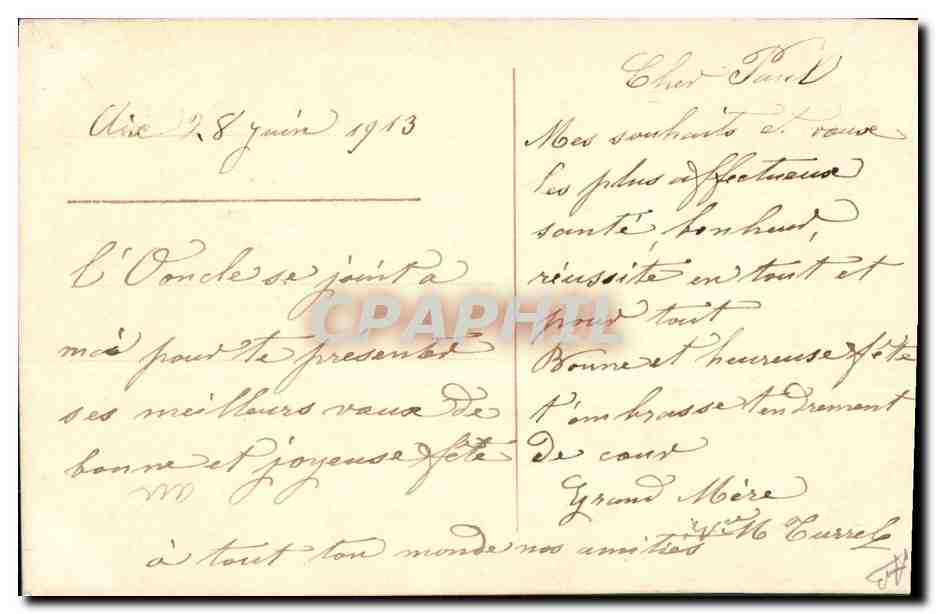 Aix 28 juin 1913
l'Oncle se joint a
moi pour te présenter
ses meilleurs vœux de
bonne et joyeuse fête
Cher Paul
Mes souhaits et vœux
les plus affectueux
santé, bonheur,
réussite en tout et
pour tout
Bonne et heureuse fête
t'embrasse tendrement
de cœur
Grand Mère
Vve M Turrel
à tout ton monde nos amitiés
CPAPHIL